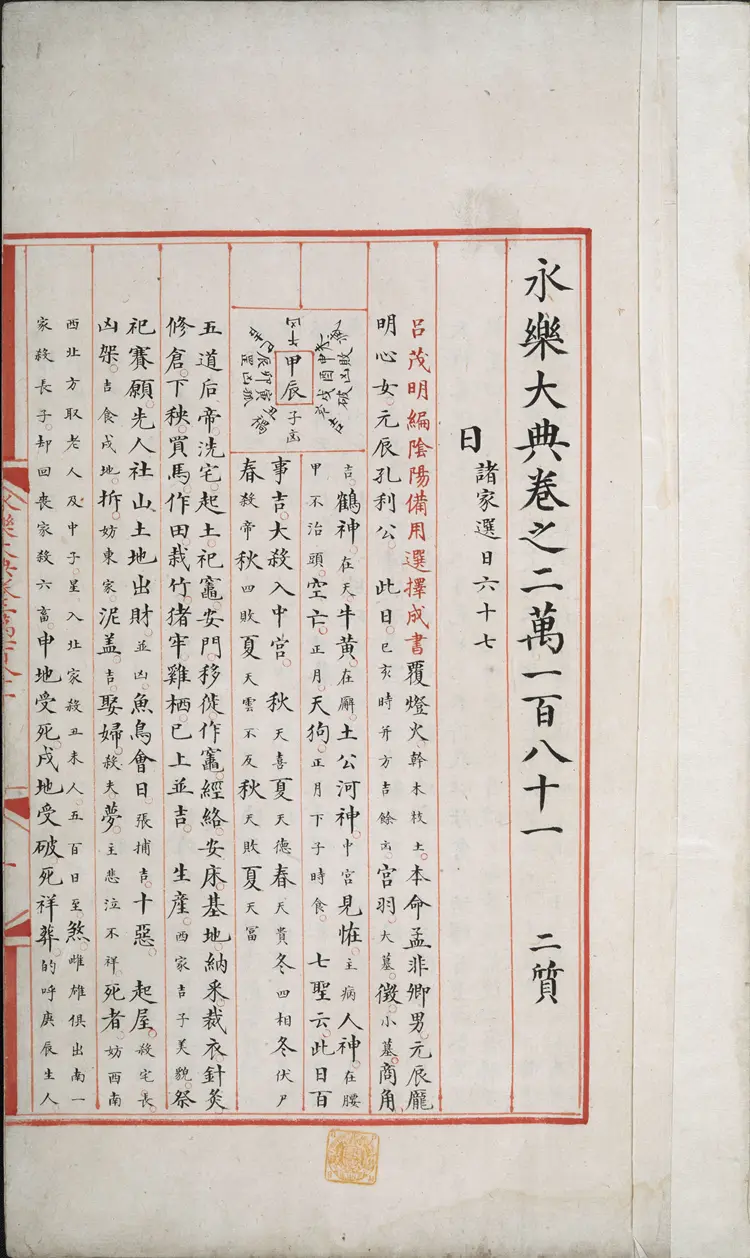 永樂大典卷之二萬一百八十一 二質
日 諸家選日六十七
呂茂明編陰陽備用選擇成書覆燈火。幹木枝土。本命孟非卿男。元辰龐
明心女。元辰孔利公。此日。巳亥時并方吉餘凶。宮羽。大墓。徵。小墓。商角
甲辰
吉。鶴神。在天。牛黃。在廨。土公河神。中宮見恠。主病人神。在腰
甲不治頭。空亡。正月。天狗。正月下子時食。七聖云。此日百
事吉。大殺入中宮。秋天喜夏天德春天貴冬四相冬伏尸
春殺帝秋四敗夏天雲不反秋天敗夏天冨
五道后帝。洗宅。起土。祀竈。安門。移徙作竈。經絡。安床。基地。納釆。裁衣。針灸
修倉。下秧。買馬。作田。栽竹。猪牢。雞栖。巳上並吉。生產。西家吉子美貌。祭
祀賽願。先人社山土地出財。並凶。魚鳥會日。張捕吉。十惡。起屋。殺宅長
凶架。吉食戍地。拆。妨東家。泥盖。吉。娶婦。殺夫夢。主悲泣不祥。死者。妨西南
西北方取老人及中子。星入北家殺丑未人。五百日至。煞。雌雄俱出南一
家殺長子。却回喪家殺六畜。申地受死。戍地受破。死祥葬。的呼庚辰生人